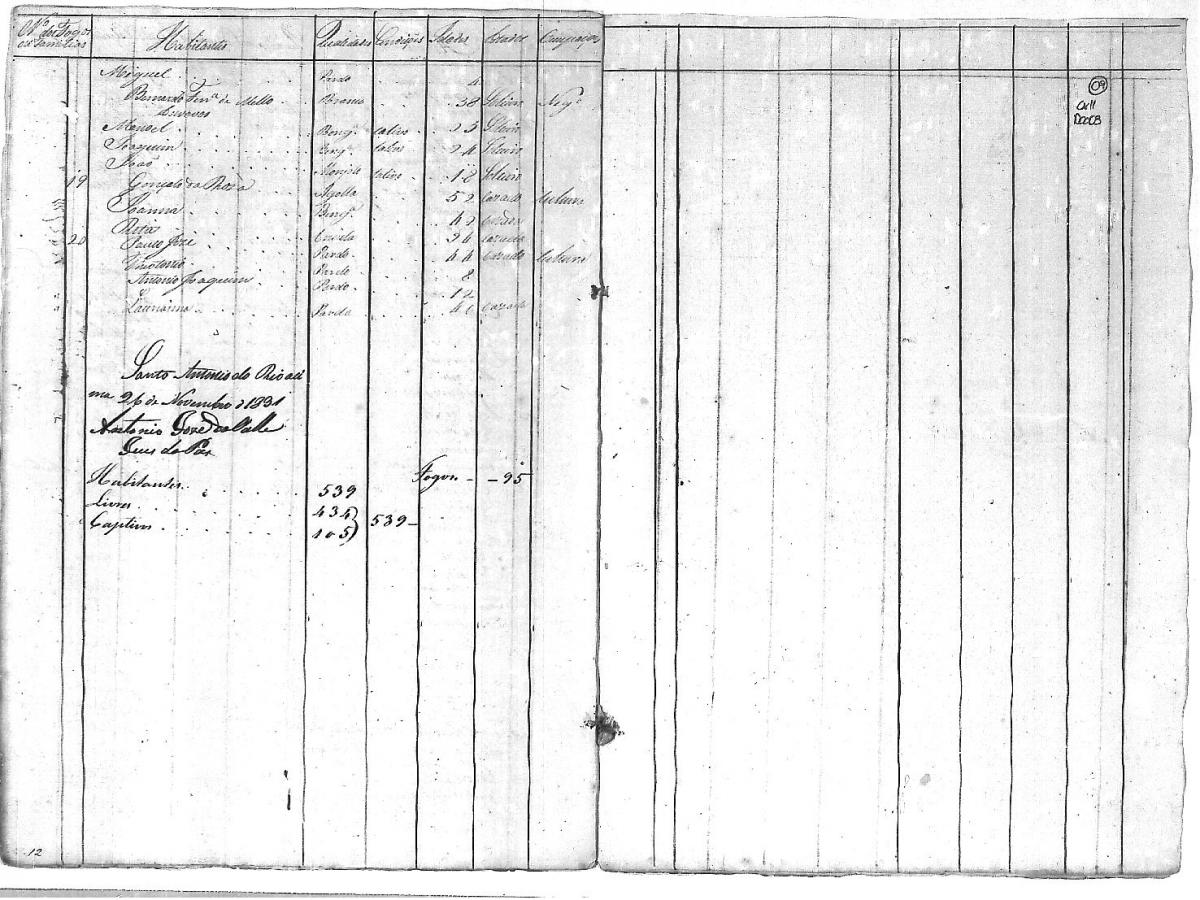 Nº dos Fogos ou familias Habitantes Qualidades Condições Idades Estados Ocupações
Miguel Pardo 4
Bernardo Ferrª de Mello Branco 38 Solteiro Negº
Escravos
Manoel Beng.ª cativo 25 Solteiro
Joaquim Beng.ª cativo 24 Solteiro
João Monjolo cativo 12 Solteiro
19 Gonçalo da Rocha Agolla 52 Cazado
Joanna Beng.ª 42 Cazada
Ritas Crioula 26 Cazada
20 Paulo Joze Pardo 44 Cazado
Pardo 8
Antonio Joaquim Pardo 12
Laurianna Parda 40 Cazada
Santo Antonio do Rio aci
ma 26 de Novembro d 1831
Antonio Joze do Valle
Juis de Pas
Habitantes 539 Fogos 95
Livres 434
Captivos 105 539
12
09
Cx11
Doc08